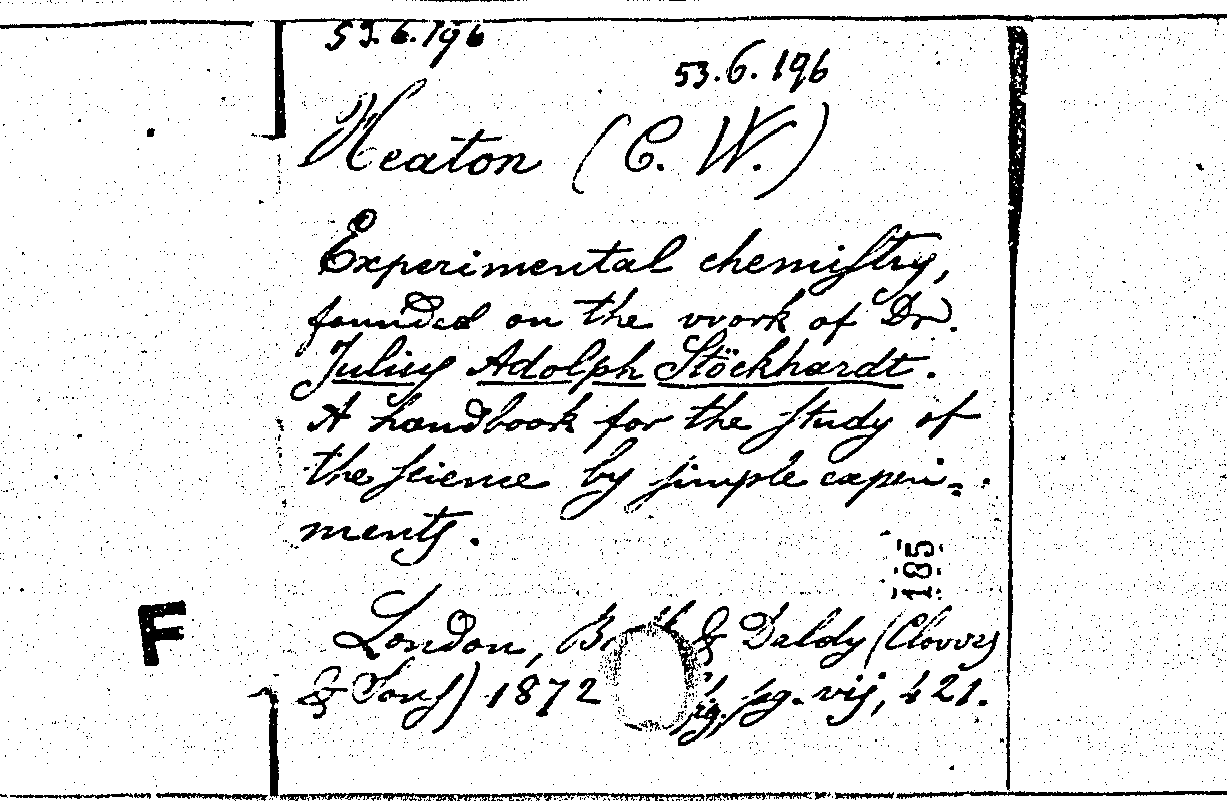 53.6.196
53.6.196
Heaton (C. W.)
Experimental chemistry,
founded on the work of Dr.
Julius Adolph Stöckhardt.
A handbook for the study of
the science by simple experi=
ments.
185
F
London, & Daldy (Clowes
& Sons) 1872 fig. pg. vij, 421.